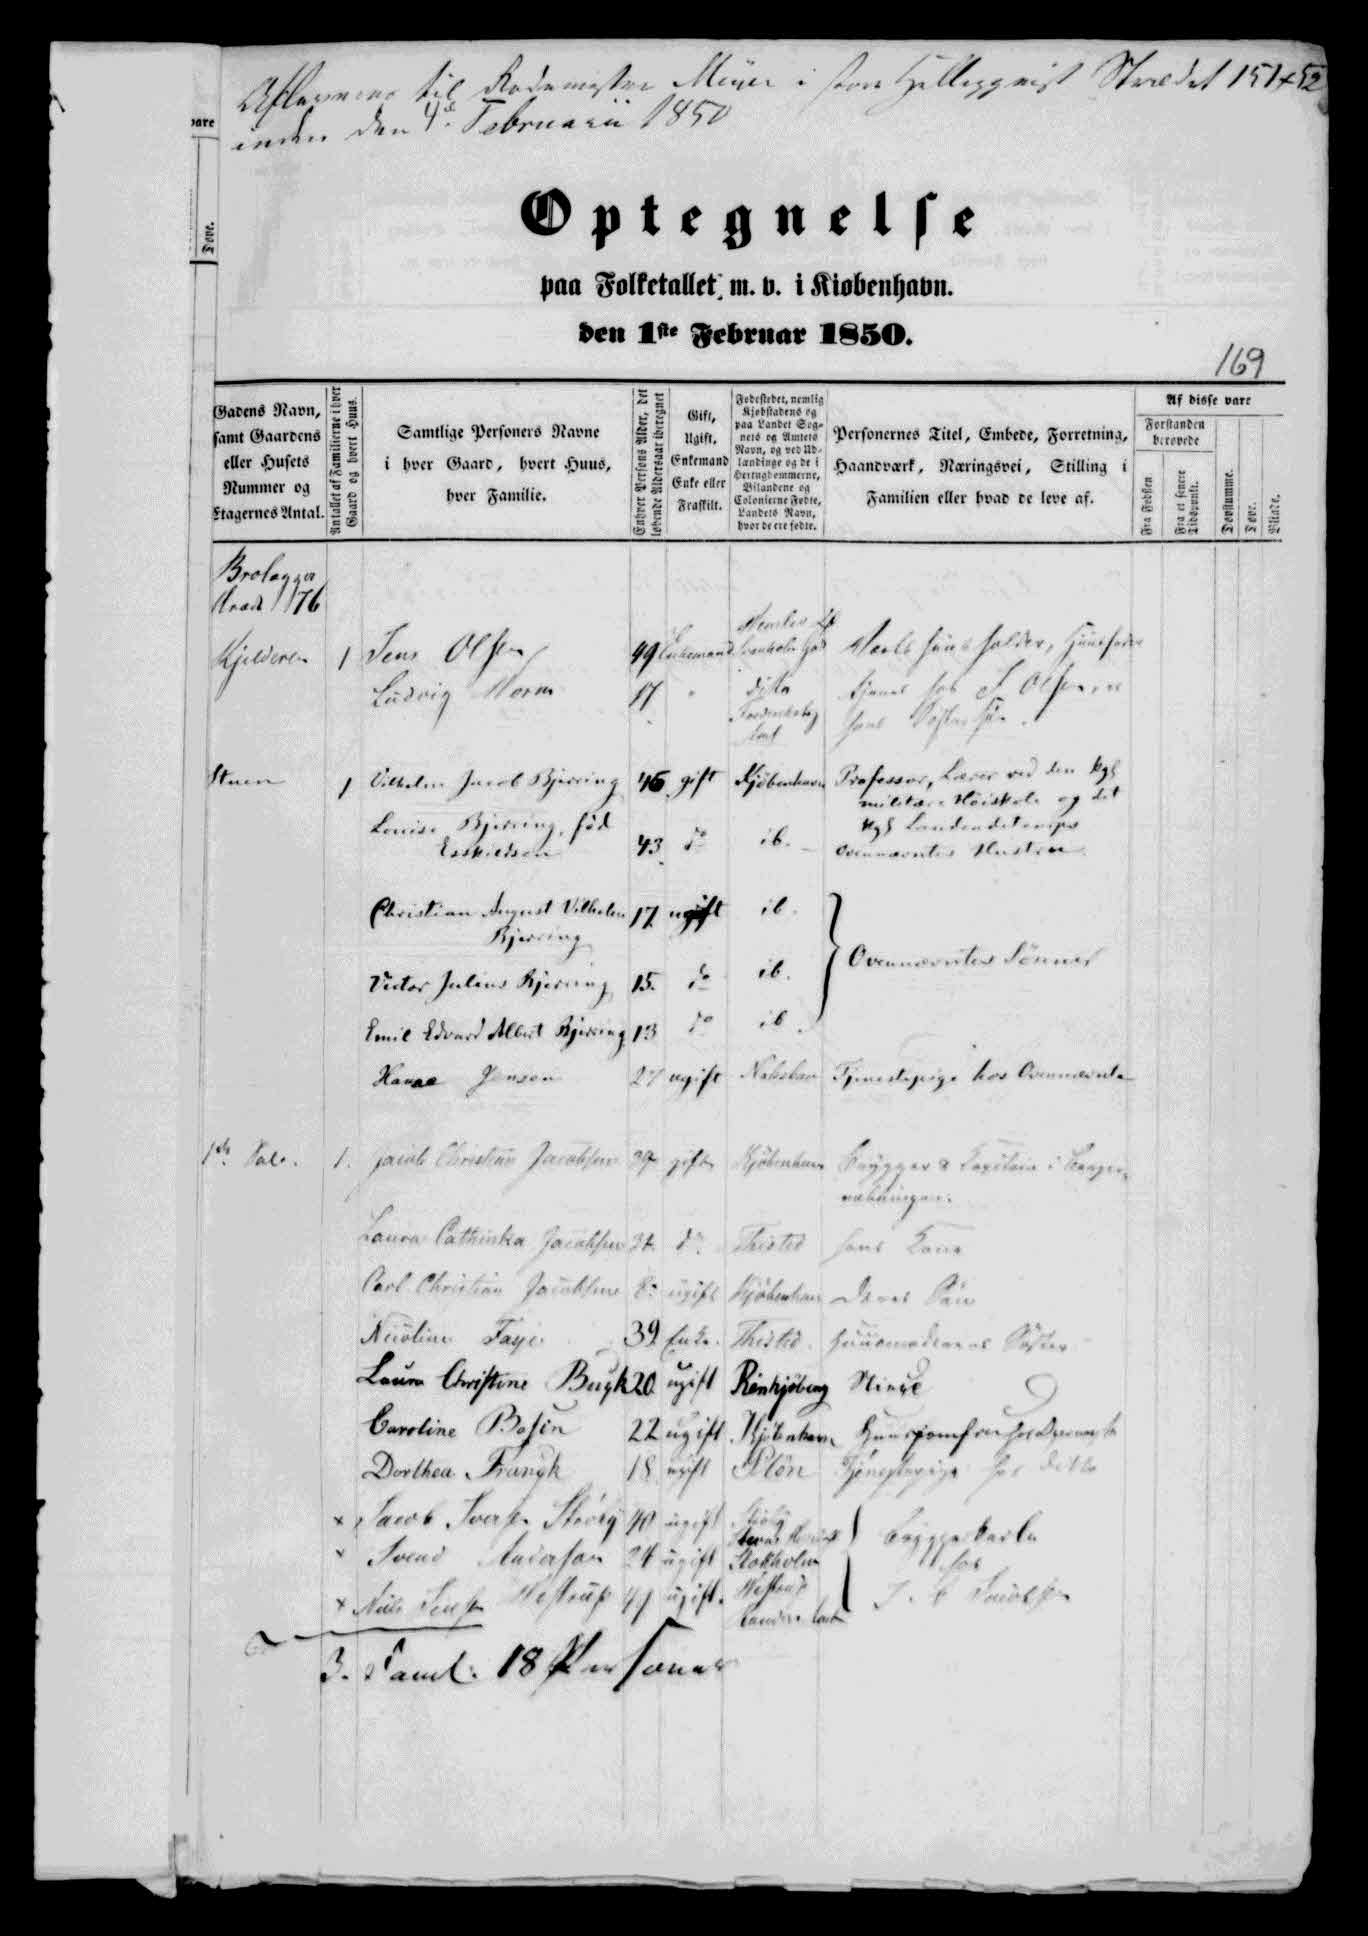 til Rodemester Meyer i store Helliggeist Strædet 151+52
inden den 4de Februarii 1850
Optegnelse
paa Folketallet m. v. i Kiøbenhavn.
den 1ste Februar 1850.
169
Gadens Navn, samt Gaardens eller Husets Nummer og Etagernes Antal.
Antallet af Familierne i hver Gaard og hvert Huus.
Samtlige Personers Navne i hver Gaard, hvert Huus, hver Familie.
Enhver Persons Alder, det løbende Aldersaar iberegnet
Gift, Ugift, Enkemand Enke eller Fraskilt.
Fødestedet, nemlig Kjøbstadens og paa Landet Sognets og Amtets Navn, og ved Udlændinge og de i Hertugdømmerne, Bilandene og Colonierne Fødte, Landets Navn, hvor de ere fødte.
Personernes Titel, Embede, Forretning, Haandværk, Næringsvei, Stilling i Familien eller hvad de leve af.
Af disse vare
Forstanden berøvede
Fra Fødslen
Fra et senere Tidspunkt.
Døvstumme.
Døve.
Blinde.
vare
Døve.
Brolægger
Stræde 76
Kjelderen 1 Jens Olsen 49 Enkemand
Ludvig 17 " ditto tjener hos J. Olsen, er
Frederiksborg hans Søster Søn.
Amt
Stuen 1 Vilhelm Jacob Bjerring 46 gift Kjøbenhavn Professor, Lærer ved den kgl
militære Høiskole og det
Louise Bjerring, fød kgl Landcadetcorps
Eskildsen 43 do ib. Ovennævntes Hustru
Christian August Vilhelm 17 ugift ib.
Bjerring
Ovennævntes Sønner
Victor Julius Bjerring 15. do ib.
Emil Edvard Albert Bjerring 13 do ib.
Hanne Jensen 27 ugift Nakskov Tjenestepige hos Ovennævnte
1ste Sal. 1. Jacob Christian Jacobsen 39 gift Kjøbenhavn Brygger & Capitain i Borger-
væbningen.
Laura Cathinka Jacobsen do Thisted hans Kone
Carl Christian Jacobsen 8. ugift Kjøbenhavn deres Søn
Nicoline Faye 39 Enke. Thisted. Huusmoderens Søster
Laura Christine 20 ugift Rinkjøbing Niece
Caroline 22 ugift Kjøbenhavn Huusjomfru
Dorthea 18 ugift Plön Tjenestepige hos ditto
x Jacob Iversen Strøby 40 ugift Strøby
Bryggerkarle
x Svend Anderson 24 ugift Stokholm
hos
x Niels Jensen Hestrup ugift. Hestrup
J. C Jacobsen
3. Famil: 18 Personer